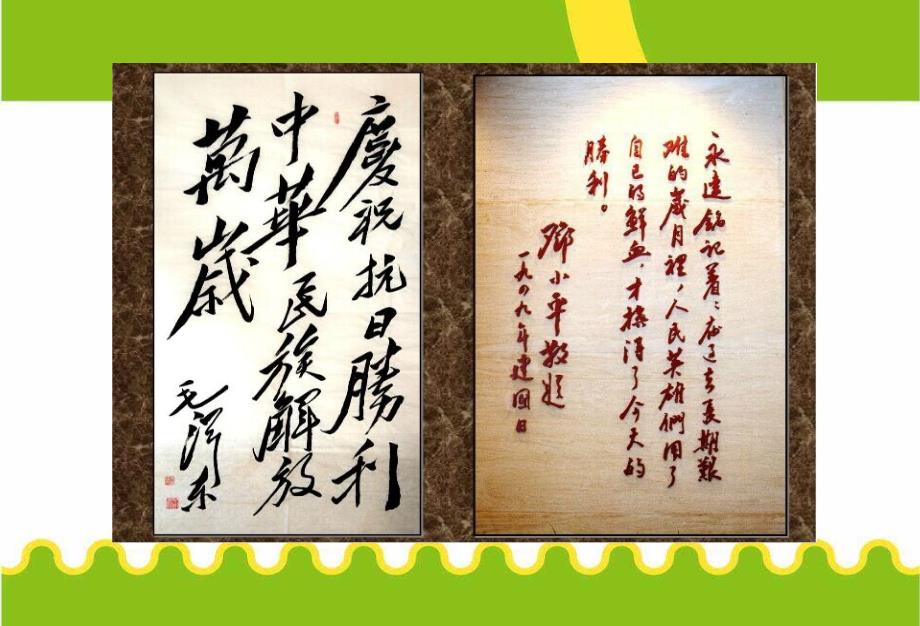 慶祝抗日勝利
中華民族解放
萬歲
毛澤东
永遠銘記着：在过去長期艱
難的歲月裡，人民英雄們用了
自己的鮮血，才換得了今天的
勝利。
鄧小平敬題
一九四九年建國日